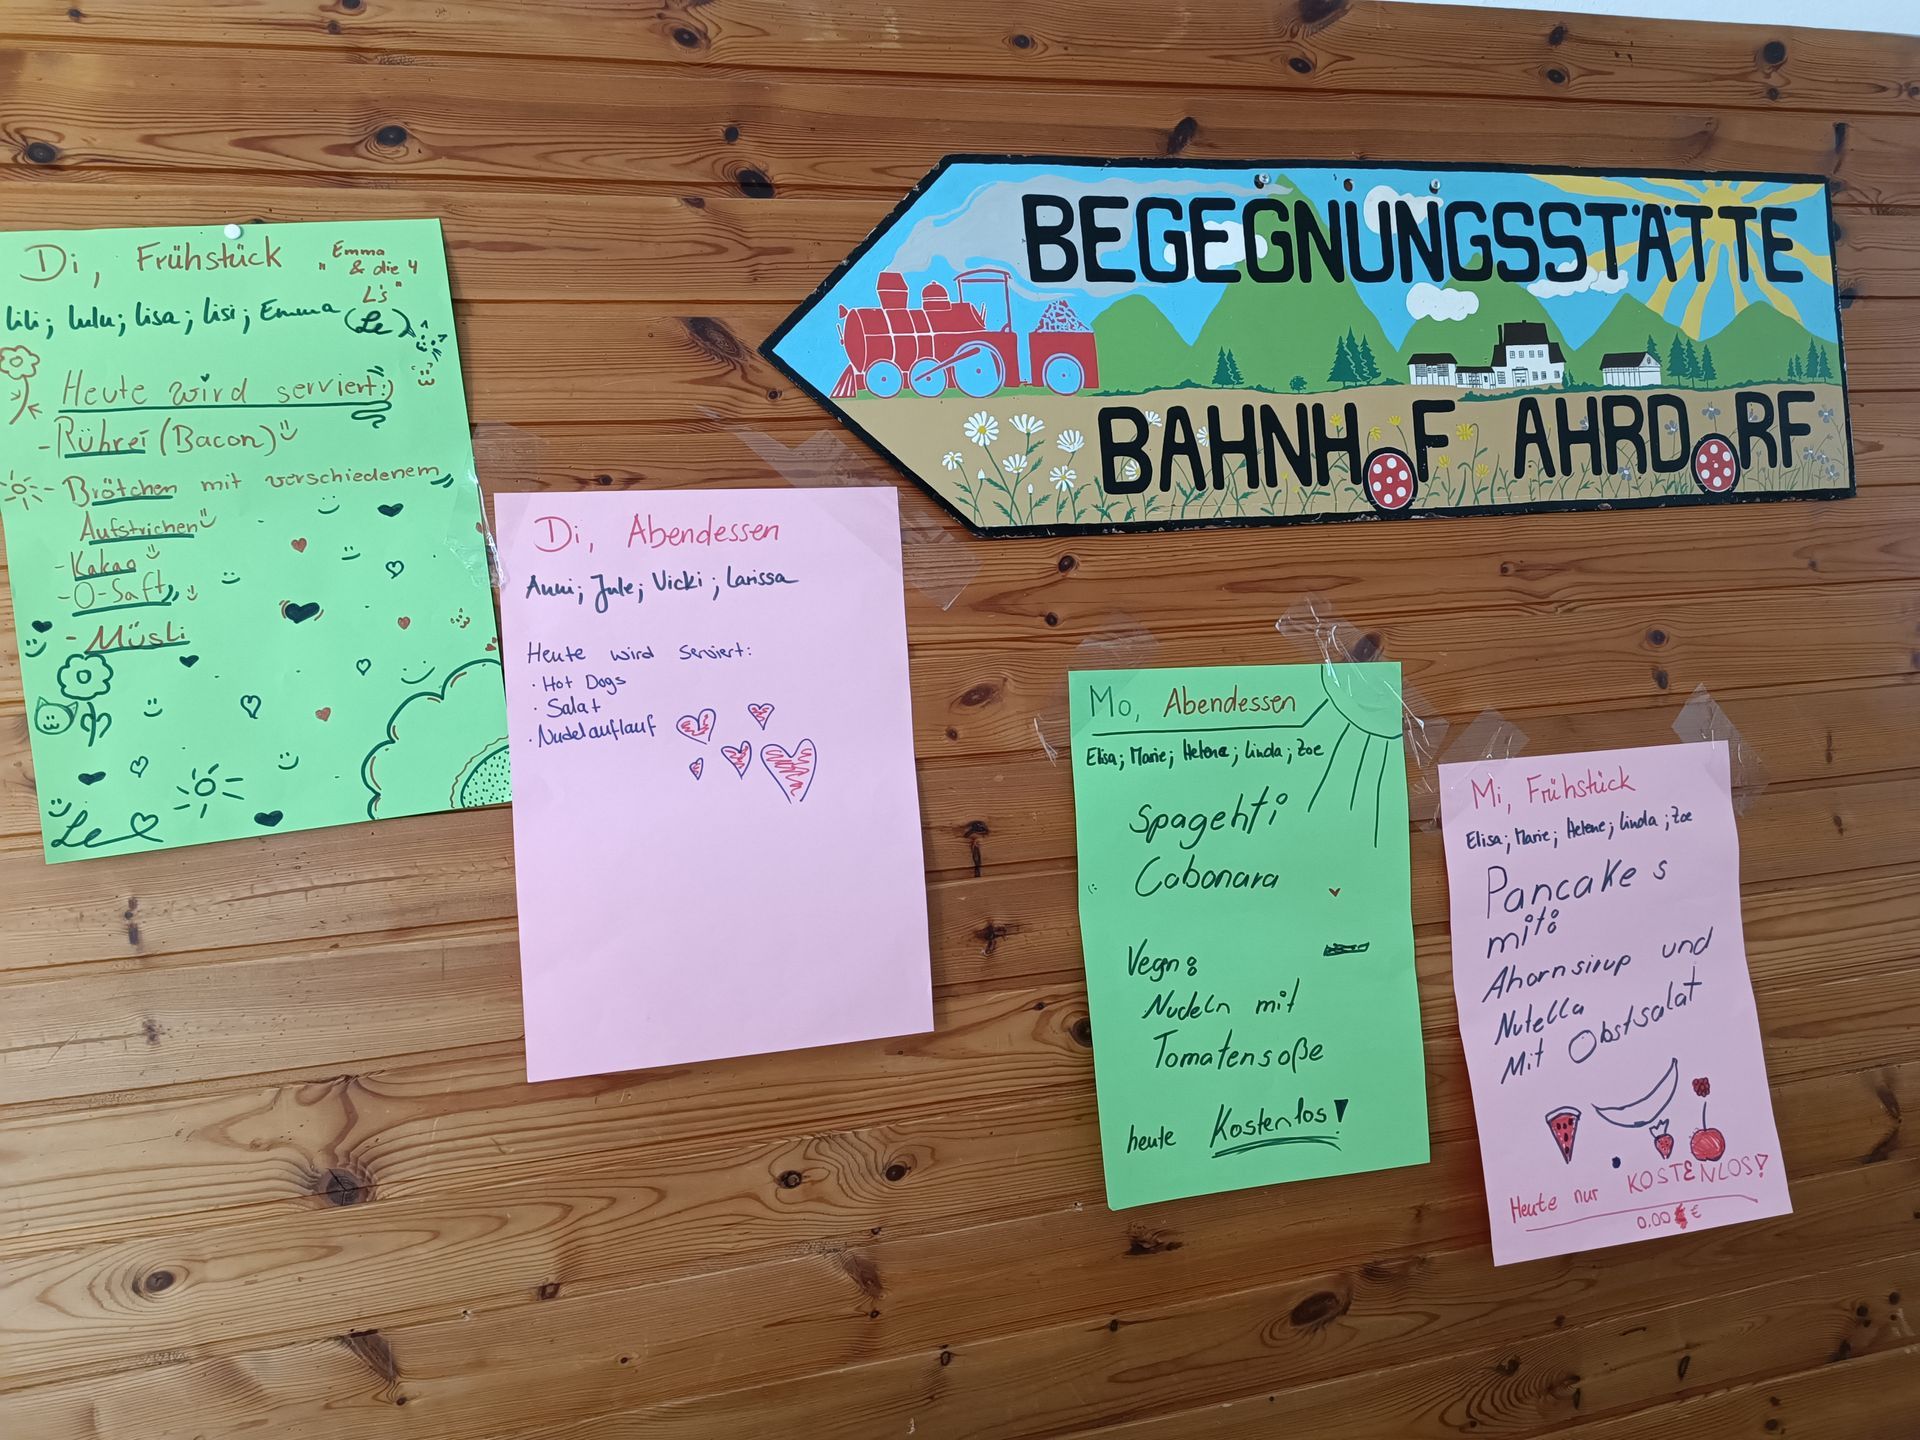 BEGEGNUNGSSTÄTTE
BAHNHOF AHRDORF
Di, Frühstück
Emma
" & die 4
L's"
Lili; Lulu; Lisa; Lisi; Emma (Le)
Heute wird serviert:)
- Rührei (Bacon)
- Brötchen mit verschiedenem
Aufstrichen
- Kakao
- O-Saft
- Müsli
Le
Di, Abendessen
Anni; Jule; Vicki; Larissa
Heute wird serviert:
· Hot Dogs
· Salat
· Nudelauflauf
Mo, Abendessen
Elisa; Marie; Helene; Linda; Zoe
Spagehti
Cabonara
Vegn:
Nudeln mit
Tomatensoße
heute Kostenlos!
Mi, Frühstück
Elisa; Marie; Helene; Linda; Zoe
Pancakes
mit:
Ahornsirup und
Nutella
Mit Obstsalat
Heute nur KOSTENLOS!
0.00 €